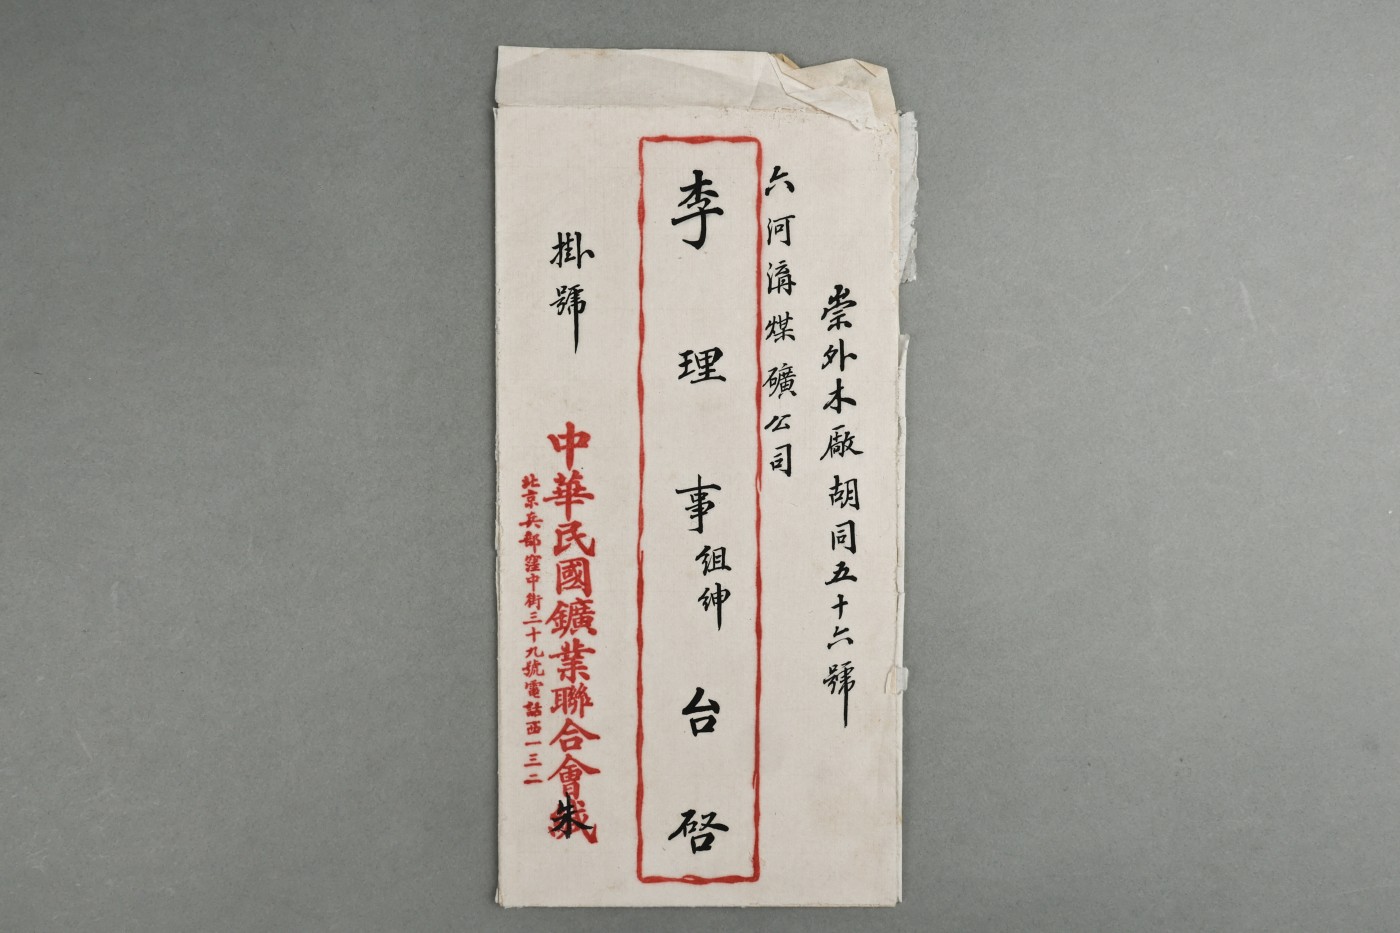 崇外木厰胡同五十六號
六河溝煤礦公司
李理事組紳台啓
掛號
中華民國鑛業聯合會緘
朱
北京兵部窪中街三十九號電話西一三二